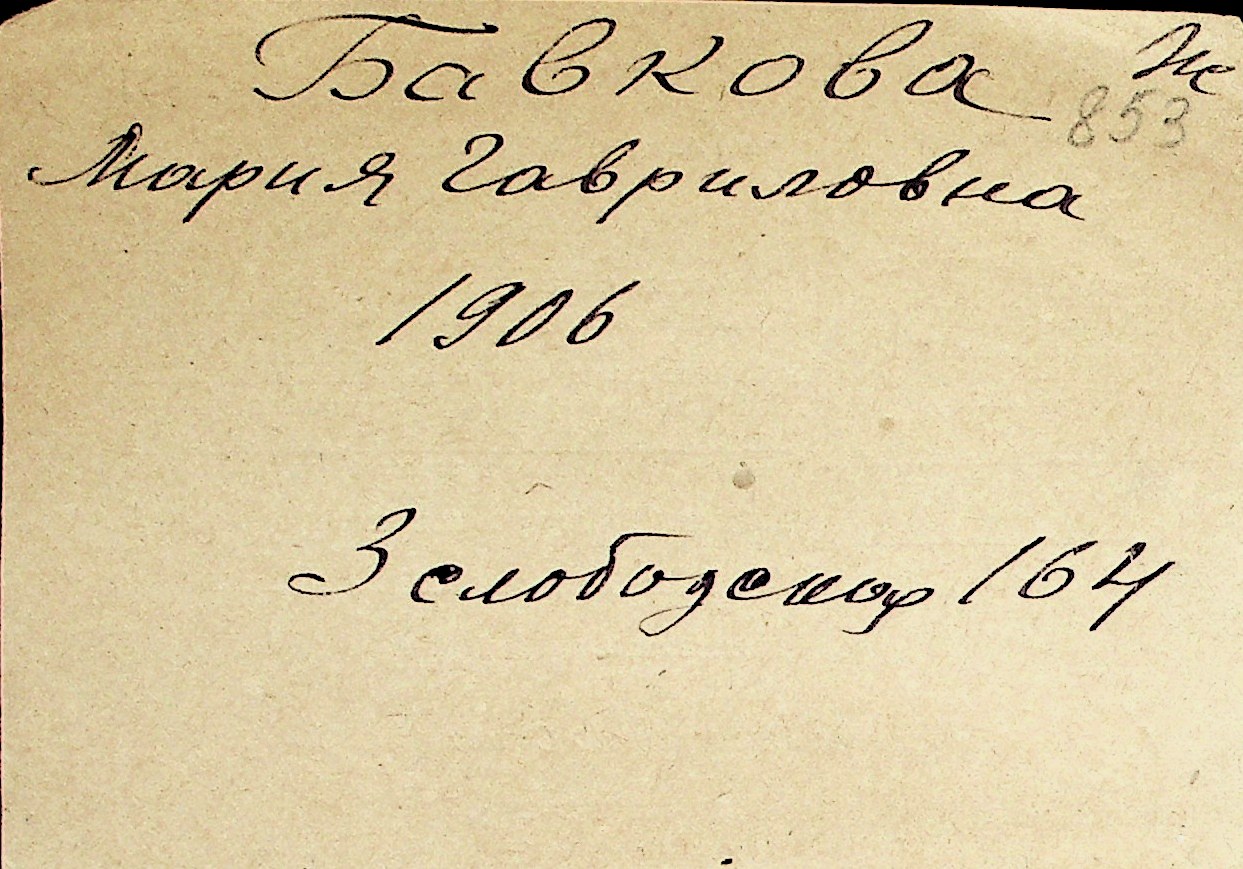 Бавкова Ж
853
Мария Гавриловна
1906
3 слободская 164